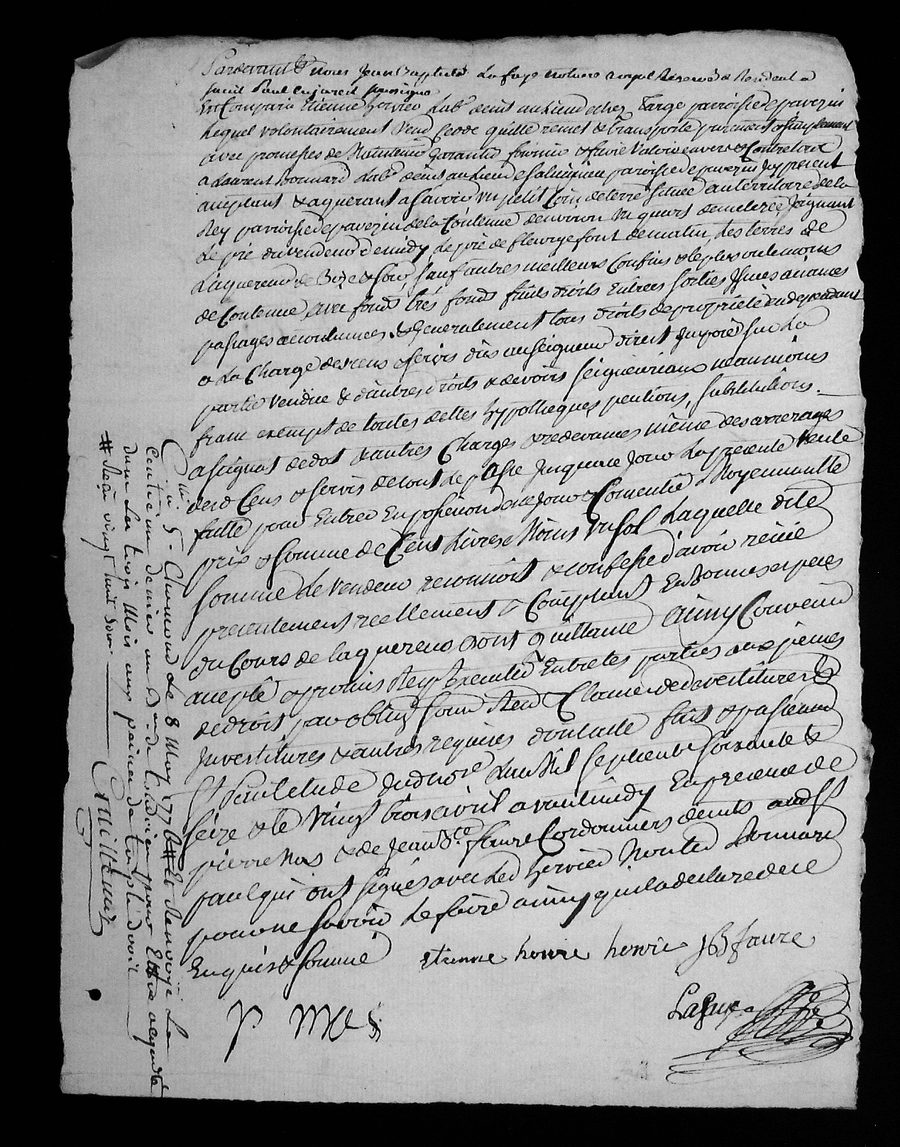 Pardevant Nous Jean Baptiste La faye notaire royal Reservé & Resident a
saint Paul en jareit soussigné
Est Comparu Etienne hervier Lab. demt au Lieu de chez Large parroisse de pavezin
Lequel volontairement Vend Cede quitte remet & transporte purement & simplement
avec promesses de Maintenir Garantir fournir & faire Valoir envers & Contre tous
a Laurent Bonnard Lab. demt au Lieu de parroisse de pavezin Icy present
aceptant & aquerant a sçavoir un petit Coin de terre située au territoire de la
Rey parroisse de pavezin de la Contenue denviron un quart de meterée Joignant
Le pré du vendeur de midy, Le pré de fleurye font de matin, Les terres de
Laquereur de Bize & soir, sauf autres meilleurs Confins & le plus ou le moins
de Contenue, avec fonds tres fonds fruits droits Entrées sorties Issues aisances
passages acoutumées & Generalement tous droits de propriété en dependant
a La Charge des cens & servis dûs au seigneur direct Imposé sur La
partie vendue & d'autres droits & devoirs seigneuriaux neanmoins
franc exempt de toutes dettes hypotheques pentions, substitutions
assignat de dot & autres Charges & redevances même des arrerages
desd Cens & servis de tout le passé Jusqua ce Jour La presente vente
faitte pour Entrer En possession de ce Jour & Consentie Moyennant le
prix & somme de Cent Livres Moins un sol Laquelle dite
somme Le vendeur reconnoit & confesse d'avoir reçue
presentement reellement & Comptant En bonnes especes
du Cours de laquereur dont quittance ainsy Convenu
accepté & promis Respr Executer Entre les parties aux peines
de droit par oblig. soum Ren. Clauses de devestitures &
Investitures & autres requises dont acte fait & passé aud
St Paul Etude dud nore Lan Mil sept cent soixante &
seize & le Vingt trois avril avant midy En presence de
pierre mas & de Jean Bte faure Cordonniers demts aud St
paul qui ont signés avec Led hervier Non Led Bonnard
pour ne savoir Le faire ainsy quil a declaré de ce
Enquis & sommé
etienne hervie hervie JB faure
P MAS
Lafaye
Con. à St Chamond Le 8 May 1776 # et renvoyé Le
Centieme denier au B. de Condrieu pour Etre acquitté
dans Les trois Mois aux peines de Triple droit
# Reçu vingt huit sous
Guillemin